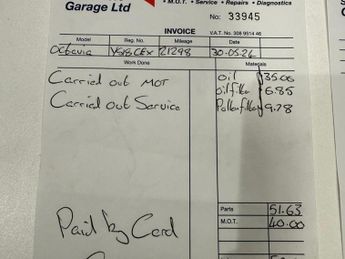 Garage Ltd
• M.O.T. • Service • Repairs • Diagnostics
No: 33945
INVOICE V.A.T. No. 308 9914 46
Model Reg. No. Mileage Date
Octavia 21298 30-05-26
Work Done Materials
Carried out MOT oil 35.00
Carried out Service oilfilter 6.85
Pollenfilter 9.78
Parts 51.63
M.O.T. 40.00
Paid by Card